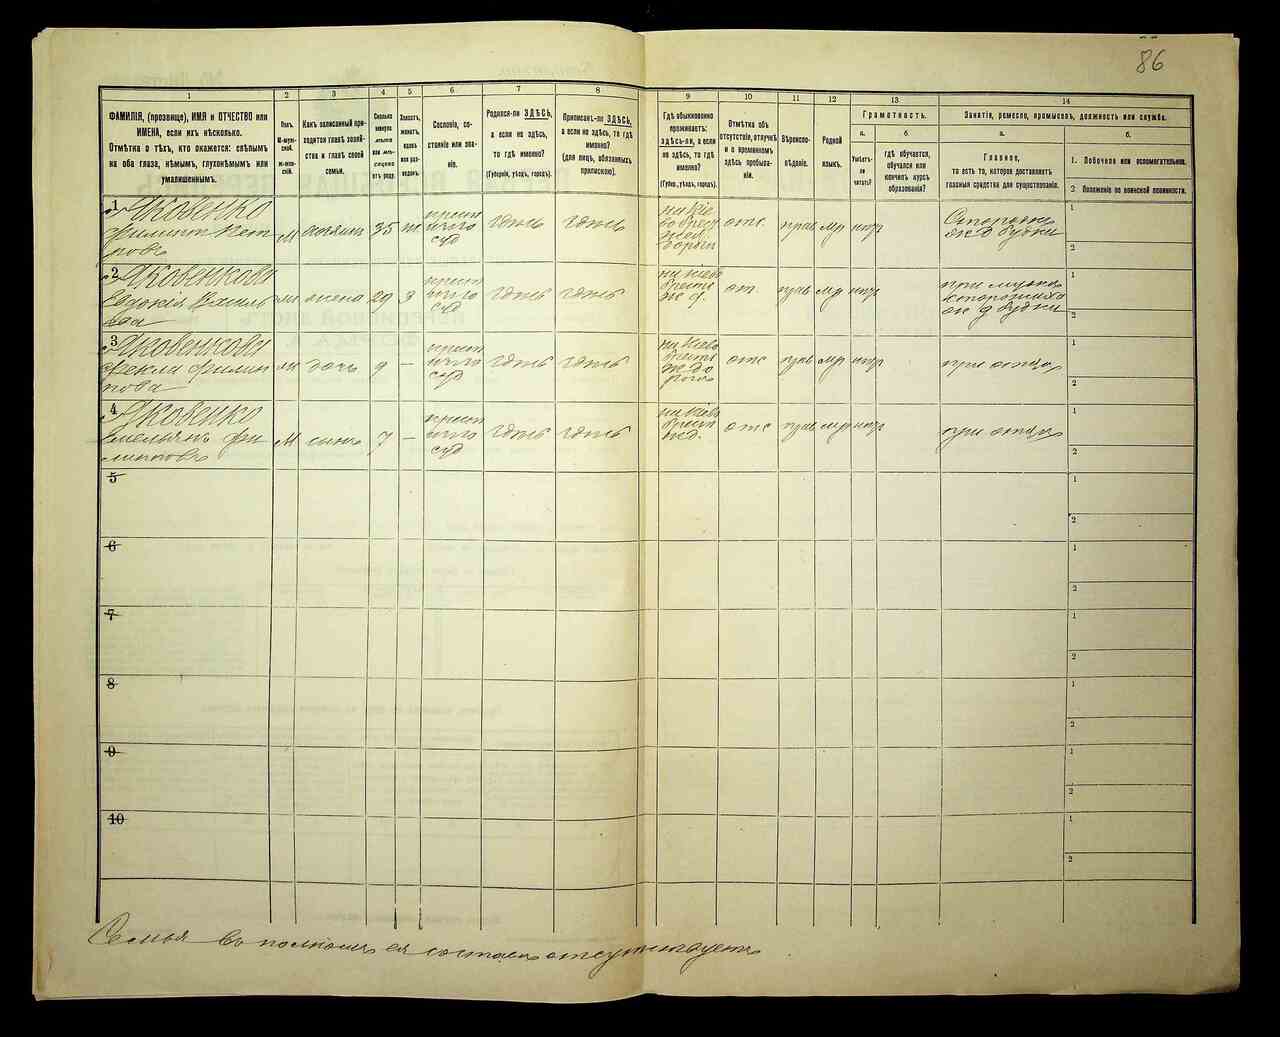 86
1
2
3
4
5
6
7
8
9
10
11
12
13
14
ФАМИЛІЯ, (прозвище), ИМЯ и ОТЧЕСТВО или
ИМЕНА, если ихъ нѣсколько.
Отмѣтка о тѣхъ, кто окажется: слѣпымъ
на оба глаза, нѣмымъ, глухонѣмымъ или
умалишеннымъ.
Полъ.
М-муж-
ской.
Ж-жен-
скій.
Какъ записанный при-
ходится главѣ хозяй-
ства и главѣ своей
семьи.
Сколько
минуло
лѣтъ
или мѣ-
сяцевъ
отъ роду.
Холостъ,
женатъ,
вдовъ
или раз-
веденъ.
Сословіе, со-
стояніе или зва-
ніе.
Родился-ли ЗДѢСЬ,
а если не здѣсь,
то гдѣ именно?
(Губернія, уѣздъ, городъ).
Приписанъ-ли ЗДѢСЬ,
а если не здѣсь, то гдѣ
именно?
(для лицъ, обязанныхъ
припискою).
Гдѣ обыкновенно
проживаетъ:
здѣсь-ли, а если
не здѣсь, то гдѣ
именно?
(Губерн., уѣздъ, городъ).
Отмѣтка объ
отсутствіи, отлучкѣ
и о временномъ
здѣсь пребыва-
ніи.
Вѣроиспо-
вѣданіе.
Родной
языкъ.
Грамотность.
а.
Умѣетъ-
ли
читать?
б.
гдѣ обучается,
обучался или
кончилъ курсъ
образованія?
Занятіе, ремесло, промыселъ, должность или служба.
а.
Главное,
то есть то, которое доставляетъ
главныя средства для существованія.
б.
1. Побочное или вспомогательное.
2 Положеніе по воинской повинности.
1 Яковенко
Филиппъ Пет
ровъ
М
хозяинъ
35
ж
крест
суд
здѣсь
здѣсь
отс.
прав
мр
нтр
Сторожъ
жд будки
1
2
2 Яковенкова
Евдокія
жена
29
З
крест
суд
здѣсь
здѣсь
от.
прав
мр
нтр
при мужѣ
сторожиха
ж д будки
1
2
3 Яковенкова
Фекла Филип
пова
дочь
9
–
крест
суд
здѣсь
здѣсь
отс
прав
мр
нтр
при отцѣ
1
2
4 Яковенко
Емельянъ Фи
липповъ
М
сынъ
7
–
крест
суд
здѣсь
здѣсь
отс
прав
мр
нтр
при отцѣ
1
2
5
1
2
6
1
2
7
1
2
8
1
2
9
1
2
10
1
2
Семья въ полномъ ея составѣ отсутствуетъ